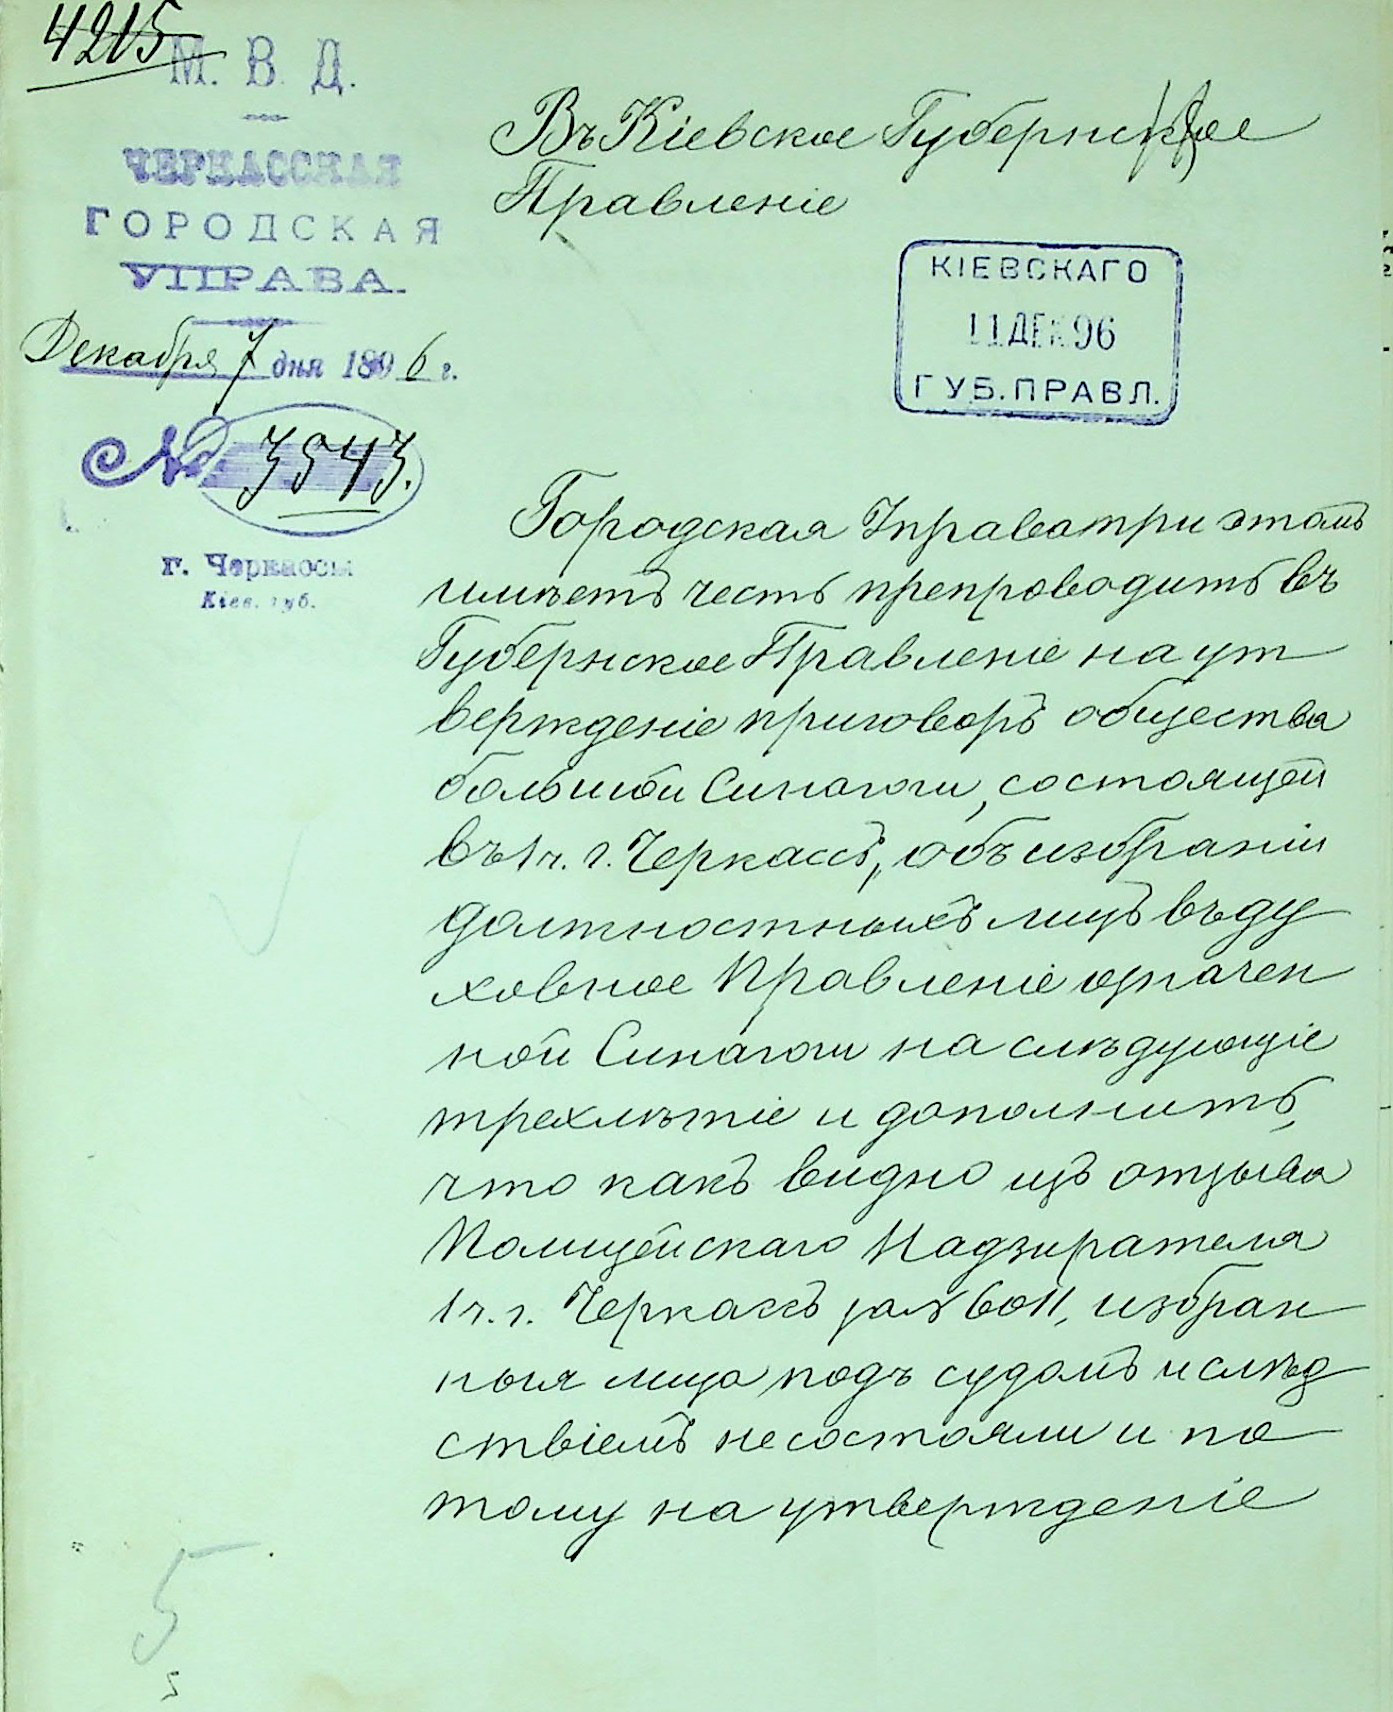 4215
М. В. Д.
ЧЕРКАССКАЯ
ГОРОДСКАЯ
УПРАВА.
Декабря 7 дня 1896 г.
№ 3543.
г. Черкассы
Кіев. губ.
Въ Кіевское Губернское
Правленіе
КІЕВСКАГО
11 ДЕК 96
ГУБ. ПРАВЛ.
Городская Управа при этомъ
имѣетъ честь препроводить въ
Губернское Правленіе на ут
вержденіе приговоръ общества
большой Синагоги, состоящей
въ 1 ч. г. Черкассъ, объ избраніи
должностныхъ лицъ въ ду
ховное Правленіе означен
ной Синагоги на слѣдующіе
трехлѣтіе и дополнить,
что какъ видно изъ отзыва
Полицейскаго Надзирателя
1 ч. г. Черкассъ за № 6011, избран
ныя лица подъ судомъ и слѣд
ствіемъ не состояли и по
тому на утвержденіе
5